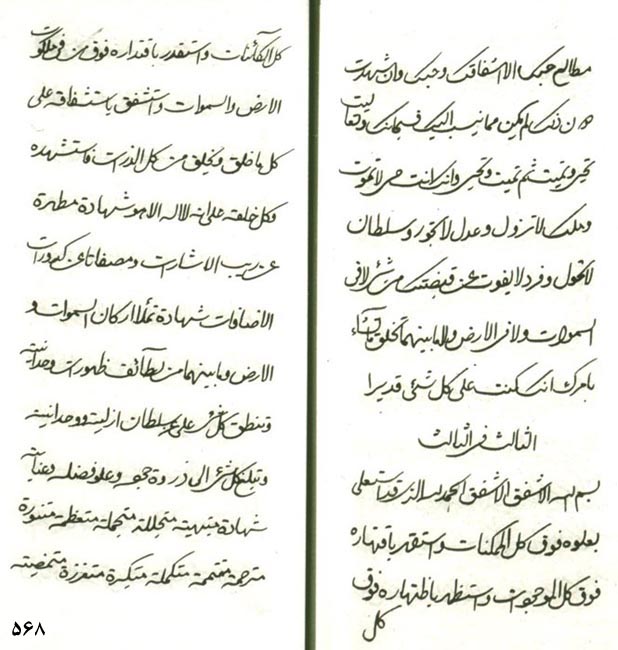 مطالع حبك الا اشفاقك وحبك وان شهدت
دون ذلك لم يكن مما نسب اليك فسبحانك وتعاليت
تحيي وتميت ثم تميت وتحيي وانك انت حي لا تموت
وملك لا تزول وعدل لا تجور وسلطان
لا تحول وفرد لا يفوت عن قبضتك من شئ لا في
السموات ولا في الارض ولا ما بينهما تخلق ما تشاء
بامرك انك كنت على كل شئ قديرا
الثالث في الثالث
بسم الله الاشفق الاشفق الحمد لله الذي قد استعلى
بعلوه فوق كل الممكنات واستقهر باقتهاره
فوق كل الموجودات واستظهر باظتهاره فوق
كل
كل الكائنات واستقدر باقتداره فوق من في ملكوت
الارض والسموات واستشفق باستشفاقه على
كل ما خلق ويخلق من كل الذرات فاستشهده
وكل خلقه على انه لا اله الا هو شهادة مطهرة
عن ريب الاشارات ومصفاتا عن كدورات
الاضافات شهادة تملأ اركان السموات و
الارض وما بينهما من بطائف ظهورات وحدانيته
وتنطق كل شئ على سلطان ازليته ووحدانيته
وتبلغ كل شئ الى ذروة حبه وعلو فضله وعنايته
شهادة متبهية متجللة متجملة متعظمة متنورة
مترحمة متكملة متكبرة متعززة
۵۶۸